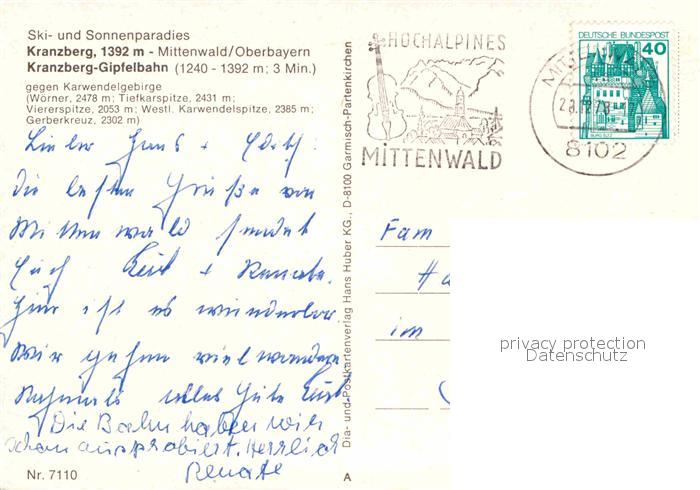 Ski- und Sonnenparadies
Kranzberg, 1392 m - Mittenwald/Oberbayern
Kranzberg-Gipfelbahn (1240 - 1392 m; 3 Min.)
gegen Karwendelgebirge
(Wörner, 2478 m; Tiefkarspitze, 2431 m;
Viererspitze, 2053 m; Westl. Karwendelspitze, 2385 m;
Gerberkreuz, 2302 m)
Lieber Hans + Edith!
Die besten Grüße von
Mittenwald sendet
Euch Kurt + Renate.
Hier ist es wunderbar
Wir gehen viel wandern
Nochmals alles Gute Kurt
Die Bahn haben wir
schon ausprobiert. Herrlich
Renate
Nr. 7110
A
Dia- und Postkartenverlag Hans Huber KG., D-8100 Garmisch-Partenkirchen
HOCHALPINES
MITTENWALD
DEUTSCHE BUNDESPOST
40
BURG ELTZ
8102
Fam
im
privacy protection
Datenschutz